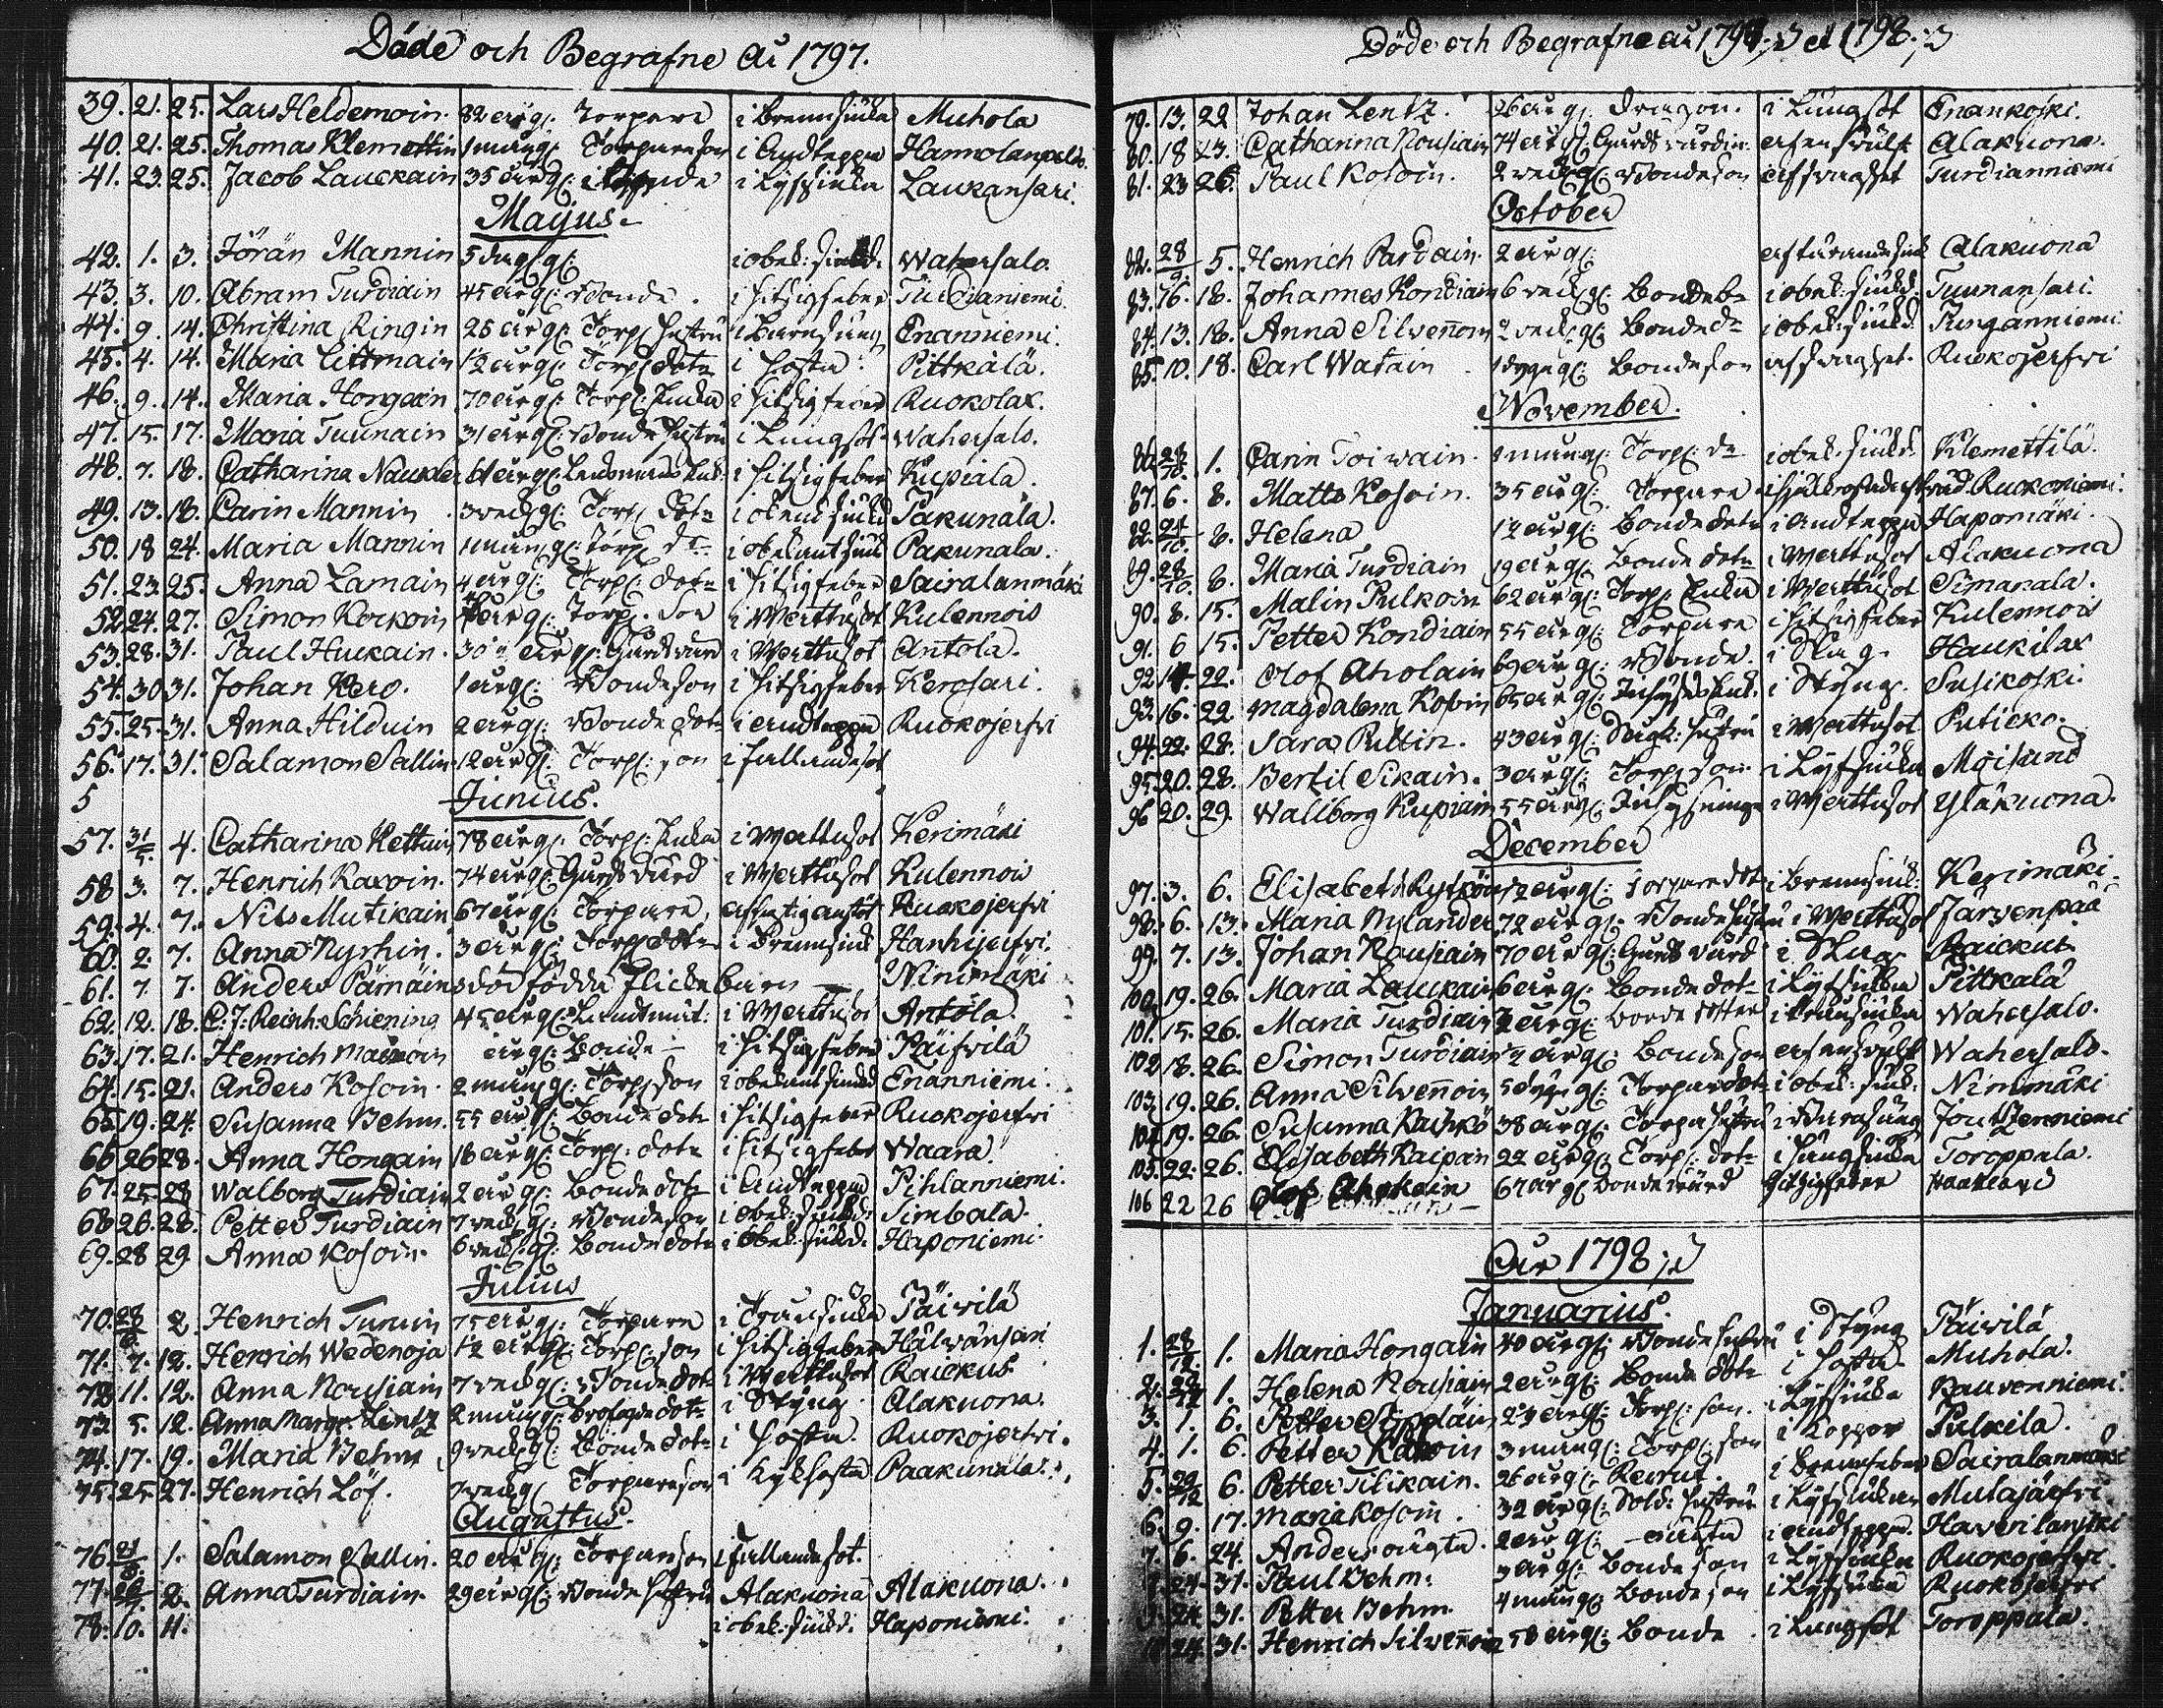 Döde och Begrafne År 1797.
39. 21. 25. Lars Heldemoin. 82 år g. Torpare i Brennsiuka Muhola
40. 21. 25. Thomas Klemettin 1 mån g. Torpareson i Andteppa
41. 23. 25. Jacob Lauckain 35 år g. i Lyfsiuka Laukansari.
Majus.
42. 1. 3. Jöran Mannin 5 dag. g: i obek: siukd. Wahersalo.
43. 3. 10. Abram Turdiain 45 år g. Bonde. i hitsigfeber Turdianiemi.
44. 9. 14. Christina Ringin 25 år g. Torp: hustru i Barnsäng Enanniemi.
45. 4. 14. Maria 12 år g. Torp: dotr i hosta. Pittkälä.
46. 9. 14. Maria Hongain 70 år g. Torp: Enka i hitsigfeber Ruokolax.
47. 15. 17. Maria Tuunain 31 år g: Bonde hustru i Lungsot Wahersalo.
48. 7. 18. Catharina Naukler 61 år g. Lensmans Enk: i hitsigfeber Kupiala.
49. 13. 18. Carin Mannin 3 veck g: Torp: dotr i obekant siukd Pakunala.
50. 18 24. Maria Mannin 1 mån g: Torp dr i obekant siukd Pakunala.
51. 23. 25. Anna Lamain 4 år g: Torp: dotr i hitsigfeber Sairalanmäki
52. 24. 27. Simon Kockoin år g. Torp. son i Werttusot Kulennois
53. 28. 31. Paul Huckain. 30 år g: Gårdsvärd i Werttusot Antola.
54. 30 31. Johan Kero. 1 år g: Bondeson i hitsigfeber Kerosari.
55. 25. 31. Anna Hilduin 2 år g: Bonde dotr i andteppa Ruokojerfvi
56. 17. 31. Salamon Sallin 12 år g. Torp: son i fallandesot
5
Junius.
57. 31/5. 4. Catharina Kettuin 78 år g. Torp: Enka i Werttusot Kerimäki
58 3. 7. Henrich Karvin. 74 år g: Gårdsvärd i Werttusot Kulennois
59. 4. 7. Nils Mutikain 67 år g. Torpare, af hastig anstöt Ruokojerfvi
60. 2. 7. Anna Nyrhin. 3 år g: Torp dotr i Brennsiuk Hanhijerfvi.
61. 7 7. Anders Pärnäins död födda Flickebarn — Ninimäki
62. 12. 18. C: J: Reinh: Schiening 45 år g: Landtmät: i Werttusot Antola.
63. 17. 21. Henrich år g: Bonde — i hitsigfeber Päifvilä
64. 15. 21. Anders Kosoin. 2 mån g. Torp: son i obekant siukd Enanniemi.
65 19. 24. Susanna Behm. 55 år g: Bonde dotr i hitsigfeber Ruokojerfvi
66 26 28. Anna Hongain 18 år g. Torp: dotr i hitsigfeber Waara.
67. 25 28 Walborg Turdiain 2 år g: Bonde dotr i Andteppa Pihlanniemi.
68 26. 28. Petter Turdiain 7 veck g. Bondeson i obek: siukd: Simbala.
69. 28 29 Anna Kosoin. 6 veck: g: Bonde dotr i obek: siukd. Haponiemi.
Julius
70. 28/6 2. Henrich 75 år g: Torpare i Tränsiuka Päivilä
71. 7. 12. Henrich Wedenoja 1/2 år g. Torp: son i hitsigfeber Hälvänsari
72 11. 12. Anna Nousiain 7 veck g: Bonde dotr i Werttusot Raickus
73. 5. 12. Anna Margr: Lentz 2 mån g: dotr i Styng. Alakuona.
74. 17. 19. Maria Behm 9 veck g: Bonde dotr i hosta. Ruokojerfvi.
75. 25 27. Henrich Löf. 7 veck g Torpareson i Kykhosta Paakunala.
Augustus.
76. 1. Salamon Sallin. 20 år g: Torpareson i fallandesot.
77. 2. Anna Turdiain. 29 år g: Bonde hustru Alakuona Alakuona.
78. 10. 11. i obek: siukd. Haponiemi.
Döde och Begrafne År 1797; et 1798.;
79. 13. 22 Johan Lentz. 26 år g. Dragon. i Lungsot Enankoski.
80. 18 23. Catharina Nousiain 74 år g: Gårdsvärdin. af en svulst Alakuona.
81. 23 26. Paul Kosoin. 2 veck g: Bondeson af slaget Turdianniemi
October
82. 28/9. 5. Henrich Pardain. 2 år g: Alakuona
83. 16. 18. Johannes Kondiain 6 veck g: Bondeb. i obek: siukd. Tuunansari.
84. 13. 18. Anna Silvenoin veck: g: Bonde dr i obek: siukd. Punganniemi
85. 10. 18. Carl Watain 1 dygn g: Bondeson af slaget. Ruokojerfvi
November.
86. 1. Carin Toiwain. mån g: Torp: dr i obek: siukd. Klemettilä.
87. 6. 8. Matts Kosoin. 35 år g: Torpare Ruokoniemi.
88. 24/10. 8. Helena 12 år g: Bonde dotr i Andteppa Hapomäki.
89. 28/10. 8. Maria Turdiain 19 år g. Bonde dotr i Werttusot Alakuona
90. 8. 15. Malin Pulkoin 62 år g: Torp: Enka i Werttusot Simanala.
91. 6 15. Petter Kondiain 55 år g: Torpare i hitsigfeber Kulennois
92 14. 22. Olof Aholain 69 år g: Bonde. i Slag. Haukilax
93. 16. 22 Magdalena Kosoin 65 år g: Inhyses Enk. i Styng. Susikoski.
94. 22. 28. Sara Pullin. 43 år g: hustru i Werttusot Puticko.
95. 20. 28. Bertil Sikain. 3 år g: Torp: son i Lyfsiuka Moisund
96 20. 29. Wallborg Kupiain 55 år g: Inhysninge i Werttusot Yläkuona.
December
97. 3. 6. Elisabeth Rytkön 1/2 år g: Torpare dotr i Brennsiuk: Kerimäki.
98. 6. 13. Maria Nylander 72 år g: Bonde hustru i Werttusot Järvenpää
99. 7. 13. Johan Nousiain 70 år g: Gårdsvärd i Slag Raickus
100. 19. 26. Maria Lauckain 6 år g. Bonde dotr i Lyfsiuka Pittkalä
101. 15. 26. Maria Turdiain år g: Bonde dotter i Wahersalo.
102 18. 26. Simon Turdiain år g: Bondeson af en svulst Wahersalo.
103. 19. 26. Anna Silvenoin 5 dygn g: Torpare dotr i obek: siuk: Ninimäki
104. 19. 26. Susanna 38 år g: Torpa hustru i Barnsäng Joutzenniemi
105. 22. 26. Elisabeth Kaipain 22 år g: Torp: dotr i Lungsiuka Toroppala.
106 22 26 Olof 67 år g Bondevärd hitzigfeber
År 1798;
Januarius.
1. 28/12. 1. Maria Hongain 40 år g: Bonde hustru i Styng Päivilä
2. 1. Helena Nousiain 2 år g: Bonde dotr i hosta Muhola.
3. 1. 6. Petter år g: Torp: son. i Lyfsiuka Rauvonniemi.
4. 1. 6. Petter 3 mån g: Torp: son i Koppor Pulkila.
5. 6. Petter Tilikain. 26 år g: Recrut. i Brennfeber Sairalanmäki
6. 9. 17. Maria Kosoin. 32 år g: Sold: hustru i Lyfsiuka Mulajärfvi
7. 6. 24. Anders 2 år g: i andteppa.
24. 31. Paul Behm. år g: Bonde son i Lyfsiuka Ruokojerfvi.
24 31. Petter Behm. 4 mån g: Bonde son i Lyfsiuka Ruokojerfvi
24. 31. Henrich Silvenoin 58 år g: Bonde i Lungsot Toroppala.